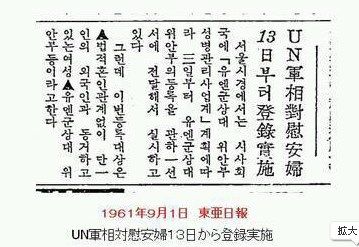 UN軍相對慰安婦
13日부터登錄實施
서울시경에서는 시사회
국에「유엔군상대 위안부
성병관리사업계 계획에따
라 三일부터 유엔군상대
위안부의등록을 관하一선
서에 전달해서 실시하고
있다
그런데 이번등록대상은
▲법적혼인관계없이 만一
인의 외국인과 동거하고
있는여성▲유엔군상대 위
안부등이라고한다
1961年9月1日 東亜日報
UN軍相対慰安婦13日から登録実施
拡大